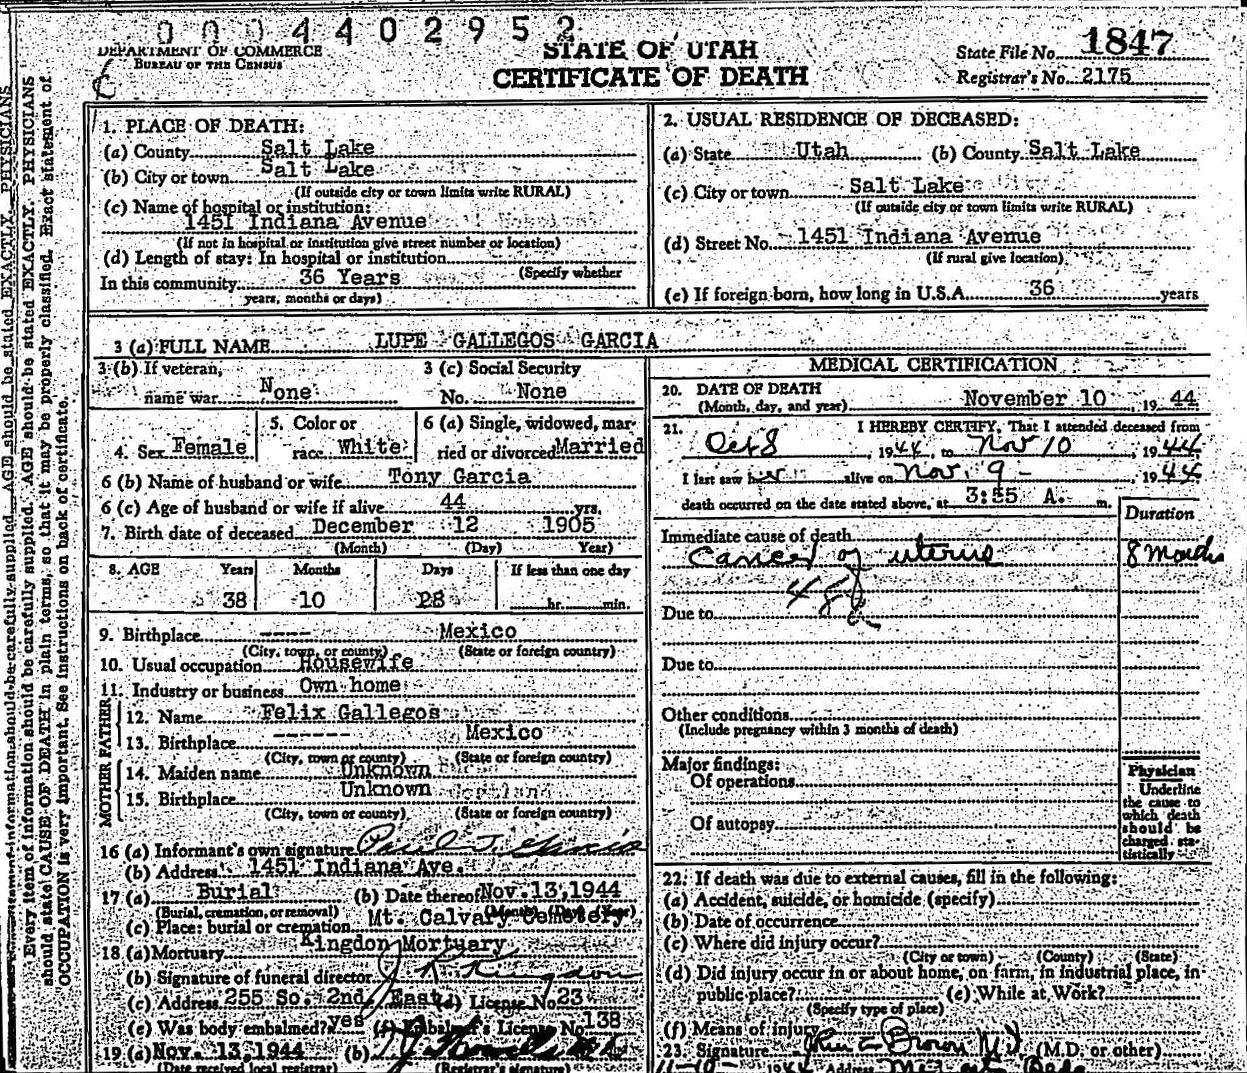 0004402952
DEPARTMENT OF COMMERCE
BUREAU OF THE CENSUS
STATE OF UTAH
CERTIFICATE OF DEATH
State File No. 1847
Registrar's No. 2175
Every item of information should be carefully supplied. AGE should be stated EXACTLY. PHYSICIANS
should state CAUSE OF DEATH in plain terms, so that it may be properly classified. Exact statement of
OCCUPATION is very important. See instructions on back of certificate.
1. PLACE OF DEATH:
(a) County Salt Lake
(b) City or town Salt Lake
(If outside city or town limits write RURAL)
(c) Name of hospital or institution:
1451 Indiana Avenue
(If not in hospital or institution give street number or location)
(d) Length of stay: In hospital or institution
(Specify whether
In this community 36 Years
years, months or days)
2. USUAL RESIDENCE OF DECEASED:
(a) State Utah (b) County Salt Lake
(c) City or town Salt Lake
(If outside city or town limits write RURAL)
(d) Street No. 1451 Indiana Avenue
(If rural give location)
(e) If foreign born, how long in U.S.A. 36 years
3 (a) FULL NAME LUPE GALLEGOS GARCIA
3 (b) If veteran,
name war None
3 (c) Social Security
No. None
4. Sex Female
5. Color or
race White
6 (a) Single, widowed, mar-
ried or divorced Married
6 (b) Name of husband or wife Tony Garcia
6 (c) Age of husband or wife if alive 44 yrs.
7. Birth date of deceased December 12 1905
(Month) (Day) Year)
8. AGE Years Months Days If less than one day
38 10 28 hr. min.
9. Birthplace ---- Mexico
(City, town, or county) (State or foreign country)
10. Usual occupation Housewife
11. Industry or business Own home
FATHER
12. Name Felix Gallegos
13. Birthplace ------ Mexico
(City, town or county) (State or foreign country)
MOTHER
14. Maiden name Unknown
15. Birthplace Unknown
(City, town or county) (State or foreign country)
16 (a) Informant's own signature Paul T. Garcia
(b) Address 1451 Indiana Ave.
17 (a) Burial (b) Date thereof Nov. 13, 1944
(Burial, cremation, or removal) (Month) (Day) (Year)
(c) Place: burial or cremation Mt. Calvary Cemetery
18 (a) Mortuary Kingdon Mortuary
(b) Signature of funeral director J R Kingdon
(c) Address 255 So. 2nd East (d) License No. 23
(e) Was body embalmed? yes (f) Embalmer's License No. 138
19 (a) Nov. 13, 1944 (b)
(Date received local registrar) (Registrar's signature)
MEDICAL CERTIFICATION
20. DATE OF DEATH
(Month, day, and year) November 10, 1944
21. I HEREBY CERTIFY, That I attended deceased from
Oct 8, 1944, to Nov 10, 1944
I last saw her alive on Nov. 9 - 1944
death occurred on the date stated above, at 3:55 A. m.
Duration
Immediate cause of death
Cancer of uterus 8 Months
48
Due to
Due to
Other conditions
(Include pregnancy within 3 months of death)
Major findings:
Of operations
Of autopsy
Physician
Underline
the cause to
which death
should be
charged sta-
tistically
22. If death was due to external causes, fill in the following:
(a) Accident, suicide, or homicide (specify)
(b) Date of occurrence
(c) Where did injury occur?
(City or town) (County) (State)
(d) Did injury occur in or about home, on farm, in industrial place, in
public place? (e) While at Work?
(Specify type of place)
(f) Means of injury
23. Signature John E Brown M.D. (M.D. or other)
11-10- 1944 Address